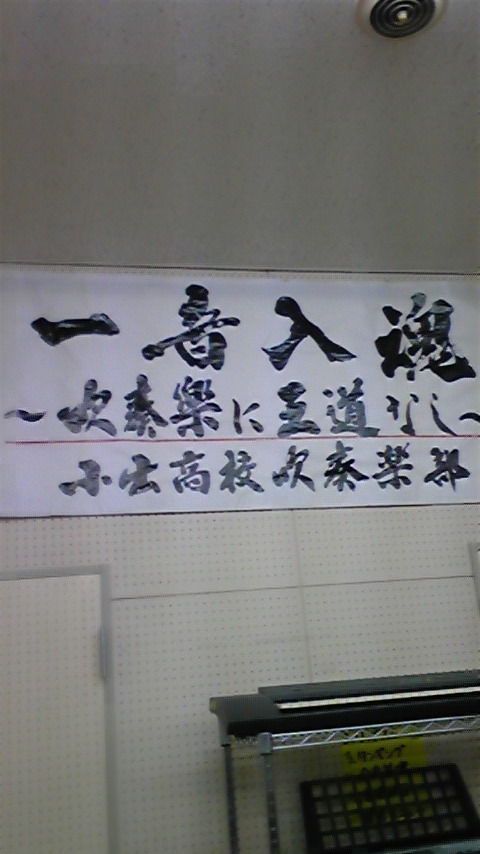 一音入魂
～吹奏楽に王道なし～
小出高校吹奏楽部